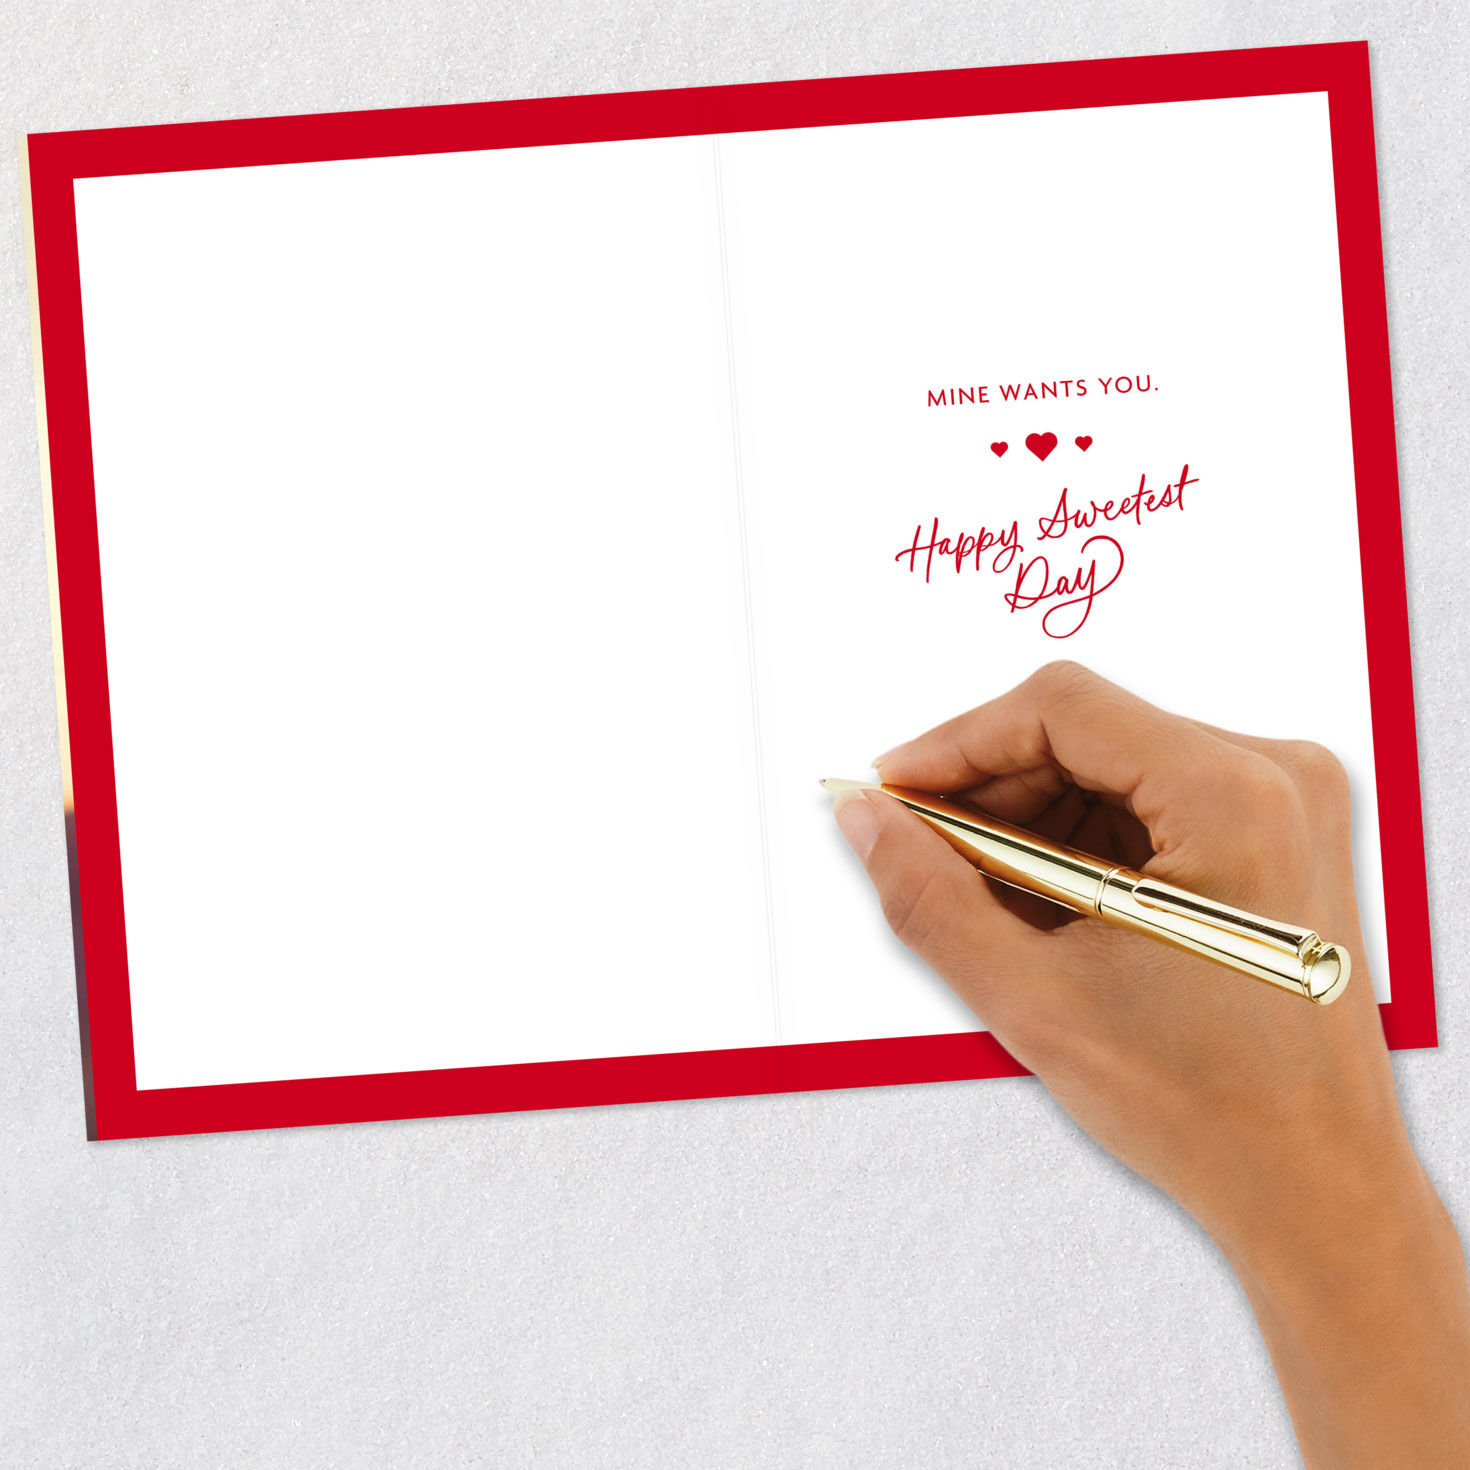 MINE WANTS YOU.
Happy Sweetest
Day